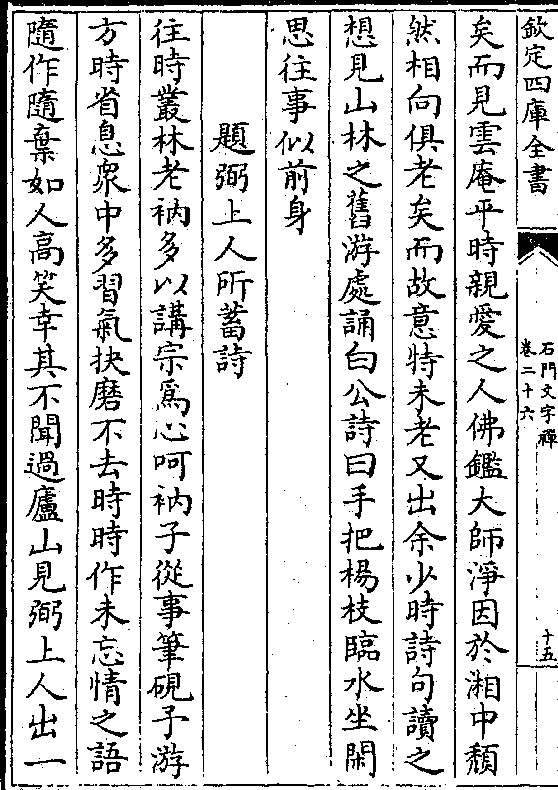 欽定四庫全書
石門文字禪
卷二十六
十五
矣而見雲庵平時親愛之人佛鑑大師淨因於湘中頹
然相向俱老矣而故意特未老又出余少時詩句讀之
想見山林之舊游處誦白公詩曰手把楊枝臨水坐閑
思往事似前身
題弼上人所蓄詩
往時叢林老衲多以講宗為心呵衲子從事筆硯予游
方時省息衆中多習氣抉磨不去時時作未忘情之語
隨作隨棄如人高笑幸其不聞過廬山見弼上人出一